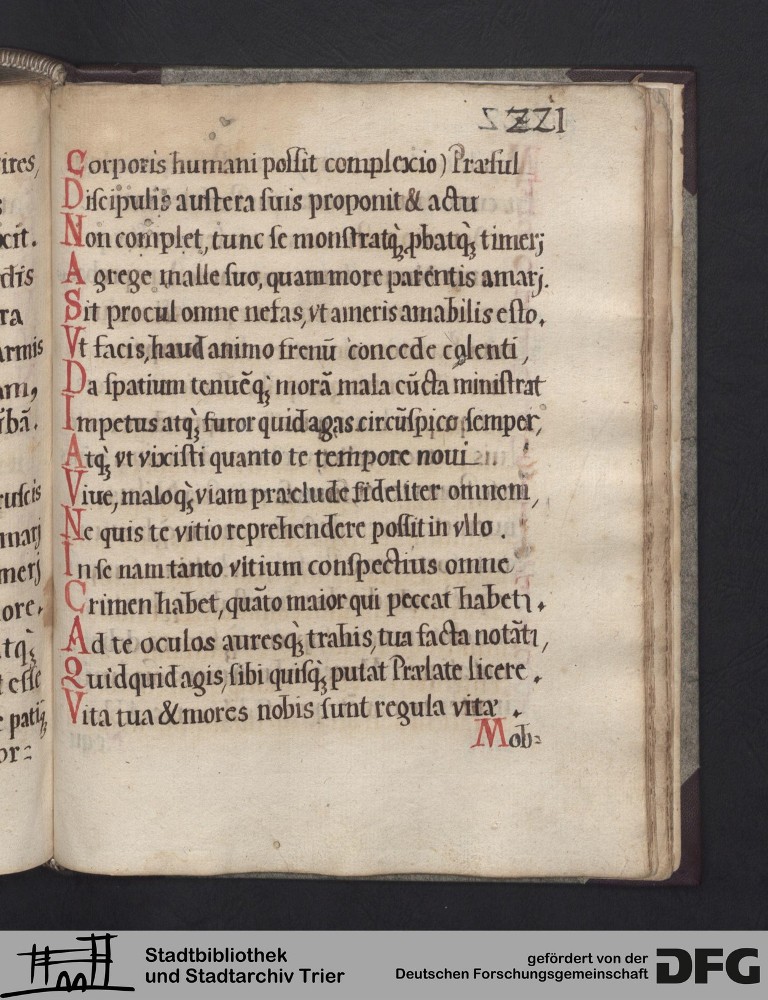 Corporis humani poſſit complexcio) Præſul
Diſcipulis auſtera ſuis proponit & actu
Non complet, tunc ſe monſtratq̀ꝫ ꝓbatq̀ꝫ timerj
A grege malle ſuo, quam more parentis amarj.
Sit procul omne nefas, vt ameris amabilis eſto.
Vt facis, haud animo frenū concede colenti,
Da ſpatium tenuēqꝫ morā mala cūcta miniſtrat
Impetus atqꝫ furor quid agas circūſpice ſemper,
Atqꝫ vt vixiſti quanto te tempore noui
Viue, maloqꝫ viam præclude fideliter omnem,
Ne quis te vitio reprehendere poſſit in vllo.
In ſe nam tanto vitium conſpectius omne
Crimen habet, quāto maior qui peccat habetꝛ.
Ad te oculos aureſqꝫ trahis, tua facta notātꝛ,
Quidquid agis, ſibi quiſqꝫ putat Prælate licere.
Vita tua & mores nobis ſunt regula vitæ.
Mob:
ſires,
cit.
dis
ra
armis
am,
rbā.
ruſcis
marj
merj
ore.
tqꝫ
t eſſe
e patiꝫ
or:
Stadtbibliothek
und Stadtarchiv Trier
gefördert von der
Deutschen Forschungsgemeinschaft
DFG